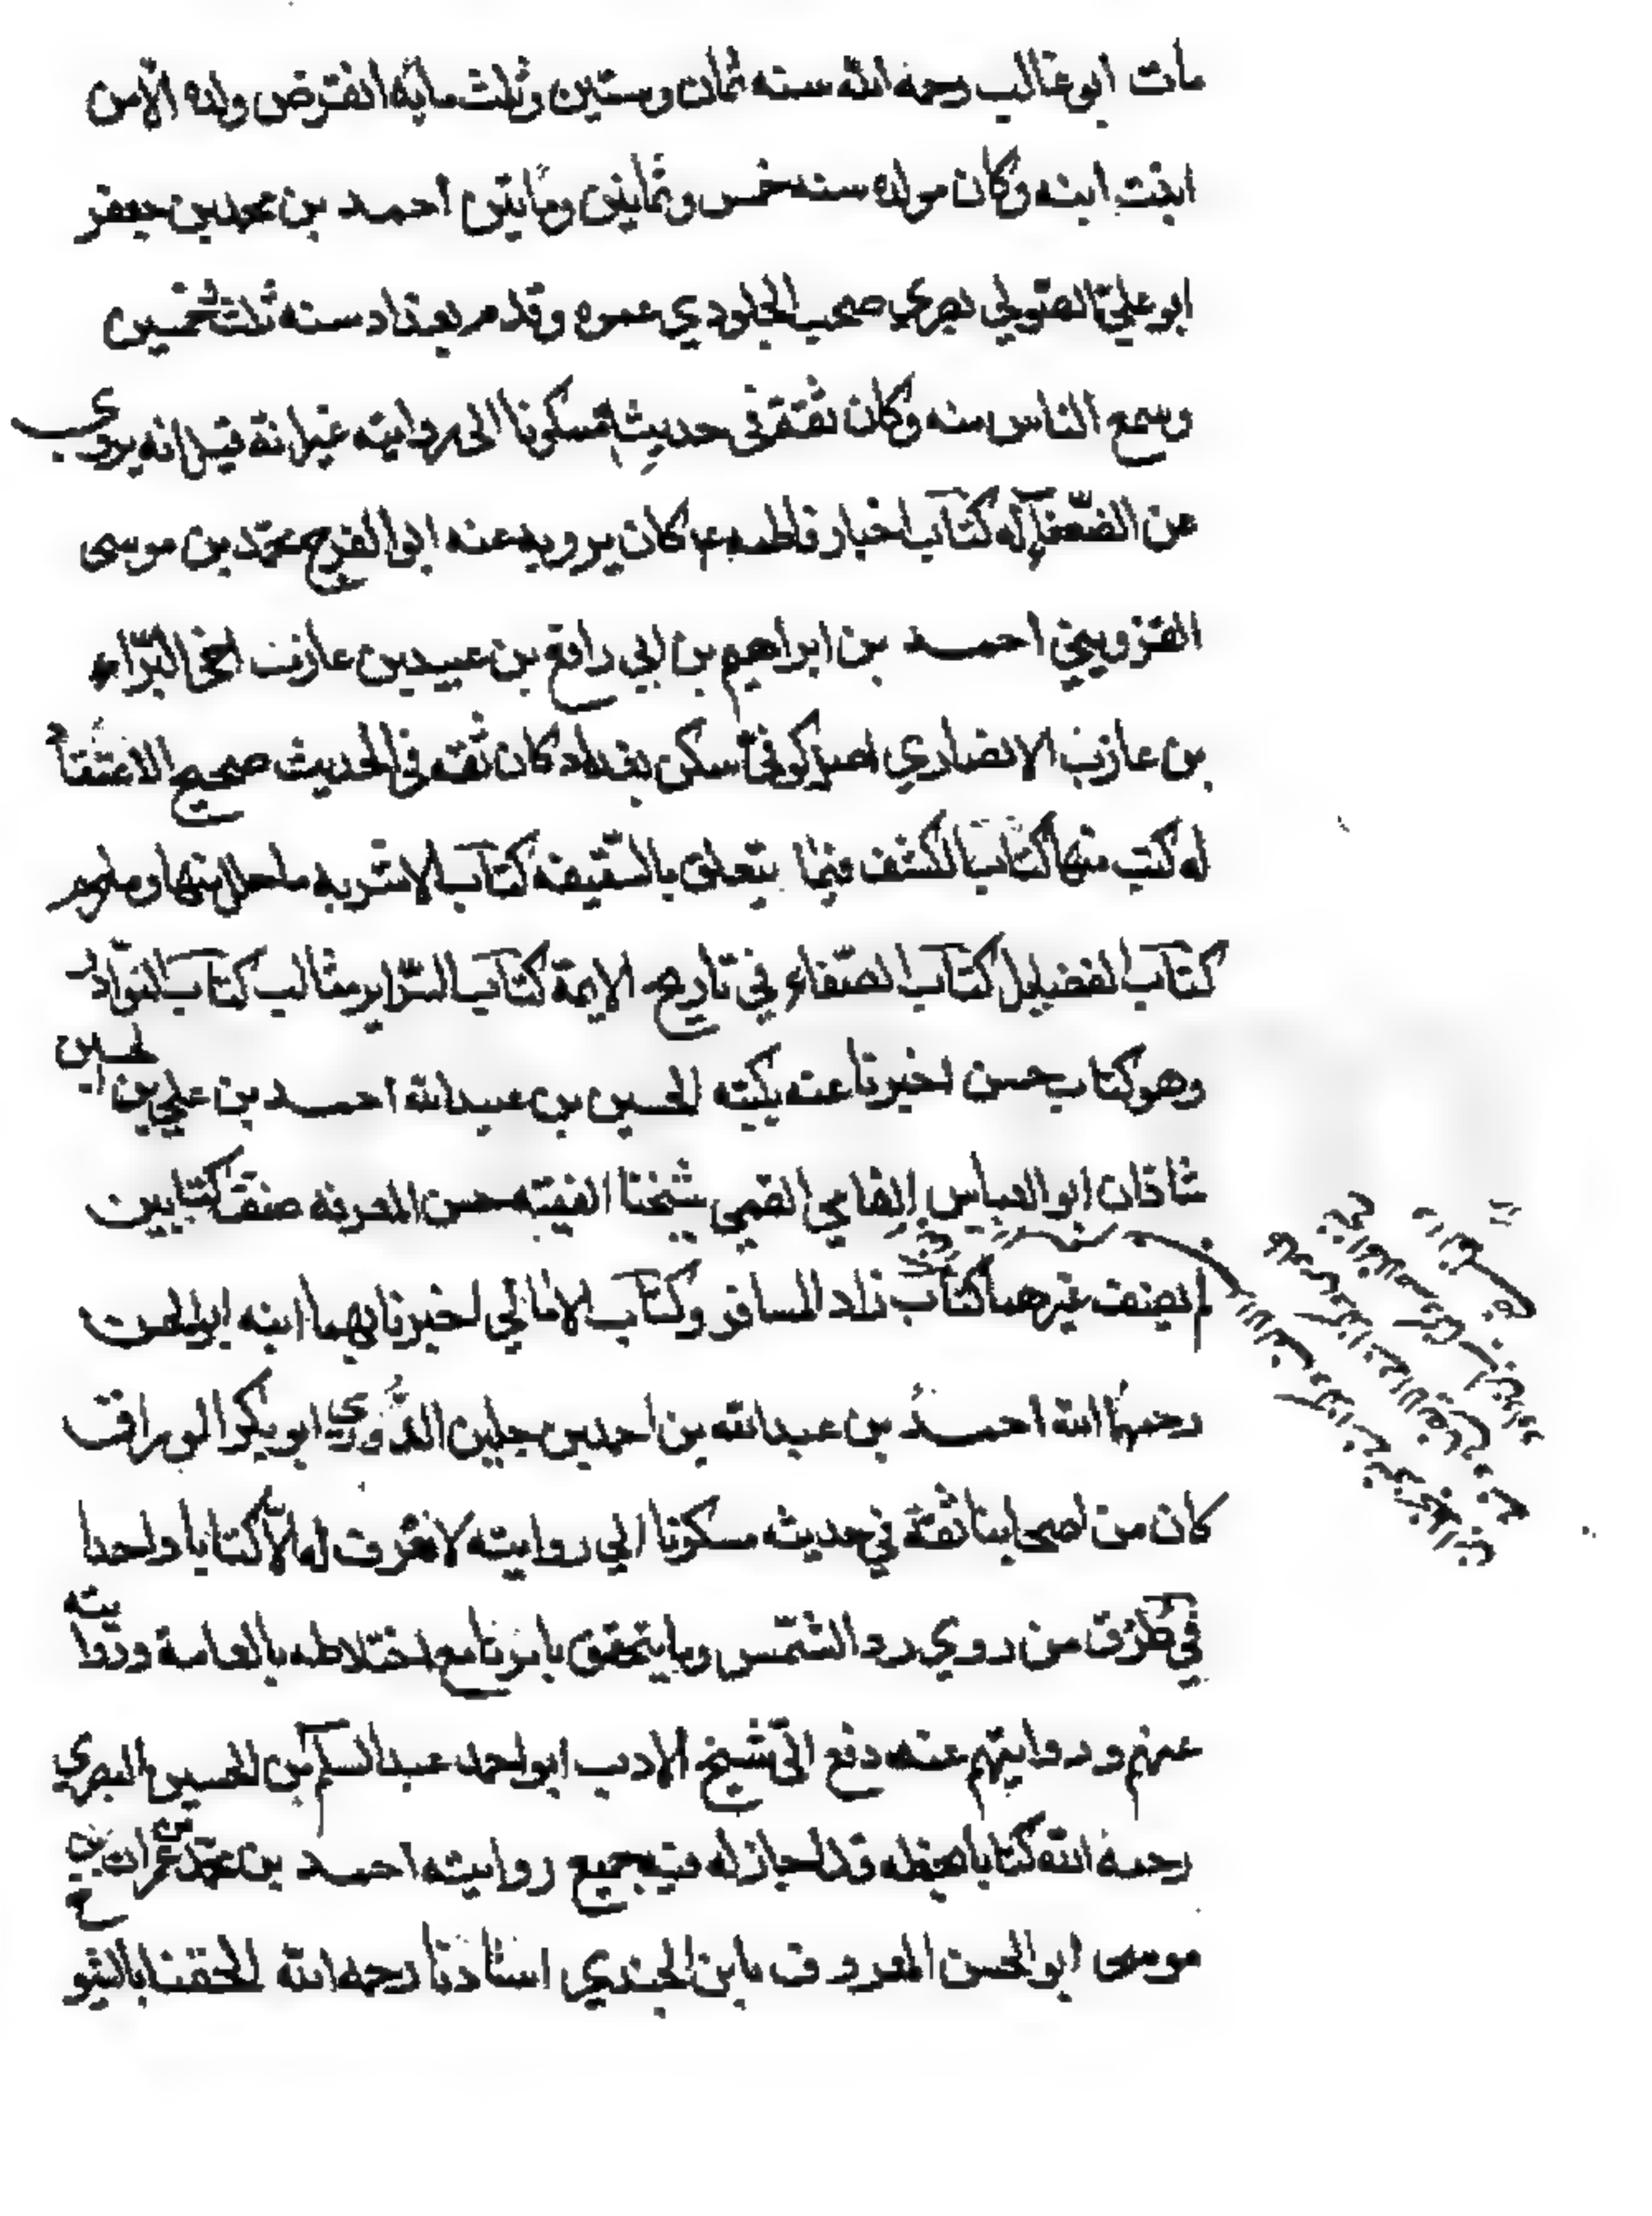 مات ابو غالب رحمه الله سنه ثمان وستين وثلث مايه انقرض ولده الا من
ابنت ابنه وكان مولده سنه خمس وثمانين ومايتين احمد بن محمد بن جعفر
ابو علي الصولي بصري صحب الجلودي عمره وقدم بغداد سنه ثلث خمسين
وسمع الناس منه وكان ثقة في حديثه مسكونا الى روايته غير انه قيل انه يروي
عن الضعفآء له كتاب اخبار فاطمه ع كان يرويه عنه ابو الفرج محمد بن موسى
القزويني احمد بن ابراهيم بن ابي رافع بن عبيد بن عازب اخي البراء
بن عازب الانصاري اصله كوفي سكن بغداد كان ثقه في الحديث صحيح الاعتقاد
له كتب منها كتاب الكشف فيما يتعلق بالسقيفه كتاب الاشربه ما حلل منها وما حرم
كتاب الفضايل كتاب الصفاء في تاريخ الايمة كتاب السراير مثالب كتاب النوادر
وهو كتاب حسن اخبرنا عنه بكتبه الحسين بن عبيدالله احمد بن علي بن الحسين
شاذان ابو العباس الفامي القمي شيخنا الفقيه حسن المعرفه صنف كتابين
لم يصنف غيرهما كتاب زاد المسافر وكتاب الامالي اخبرنا بهما ابنه ابو الحسن
رحمهما الله احمد بن عبدالله بن احمد بن جلين الدوري ابو بكر الوراق
كان من اصحابنا ثقة في حديثه مسكونا الى روايته لا نعرف له الا كتابا واحدا
في طرق من روي رد الشمس وما يتحقق بامرنا مع اختلاطه بالعامة وروايته
عنهم وروايتهم عنه دفع الى شيخ الادب ابو احمد عبد السلم بن الحسين البصري
رحمه الله كتابا بخطه قد اجاز له فيه جميع روايته احمد بن محمد بن عمران بن
موسى ابو الحسن المعروف بابن الجندي استادنا رحمه الله الحقنا بالشيو